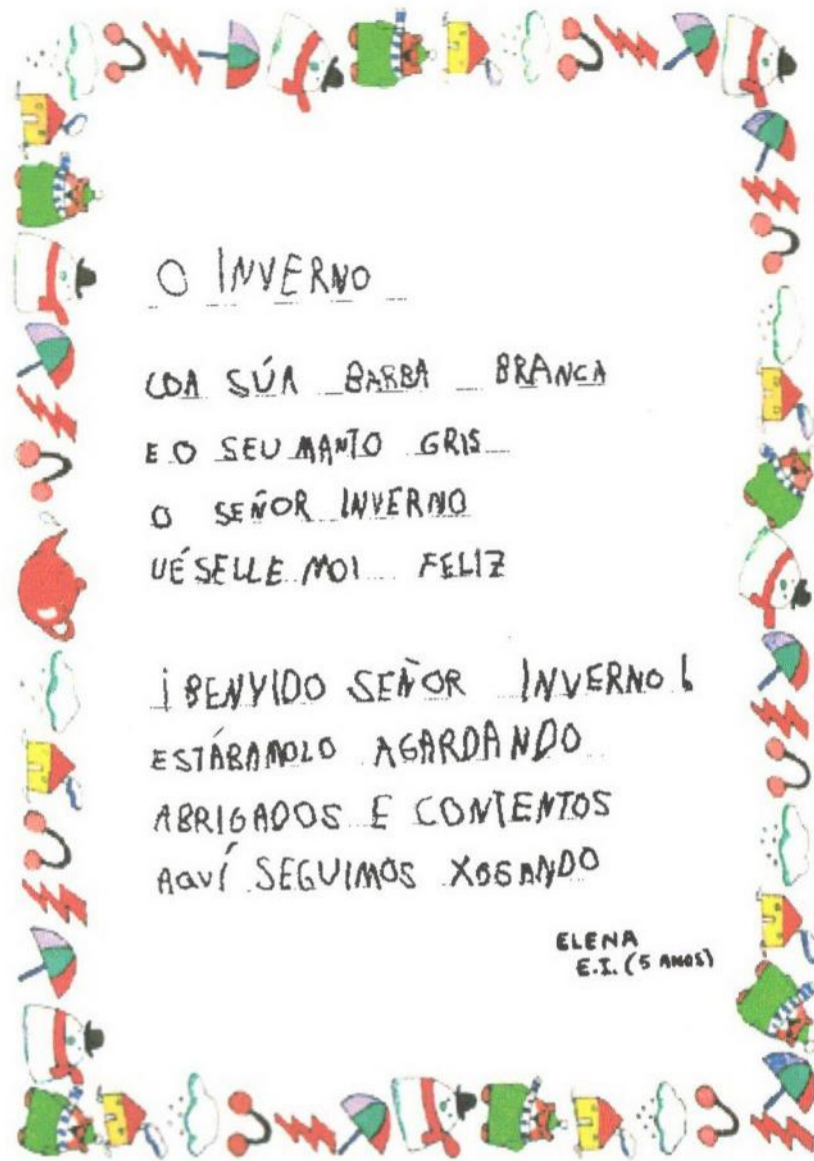 O INVERNO
COA SÚA BARBA BRANCA
E O SEU MANTO GRIS
O SEÑOR INVERNO
VÉSELLE MOI FELIZ
¡BENVIDO SEÑOR INVERNO!
ESTÁBAMOLO AGARDANDO
ABRIGADOS E CONTENTOS
AQUÍ SEGUIMOS XOGANDO
ELENA
E.I. (5 ANOS)